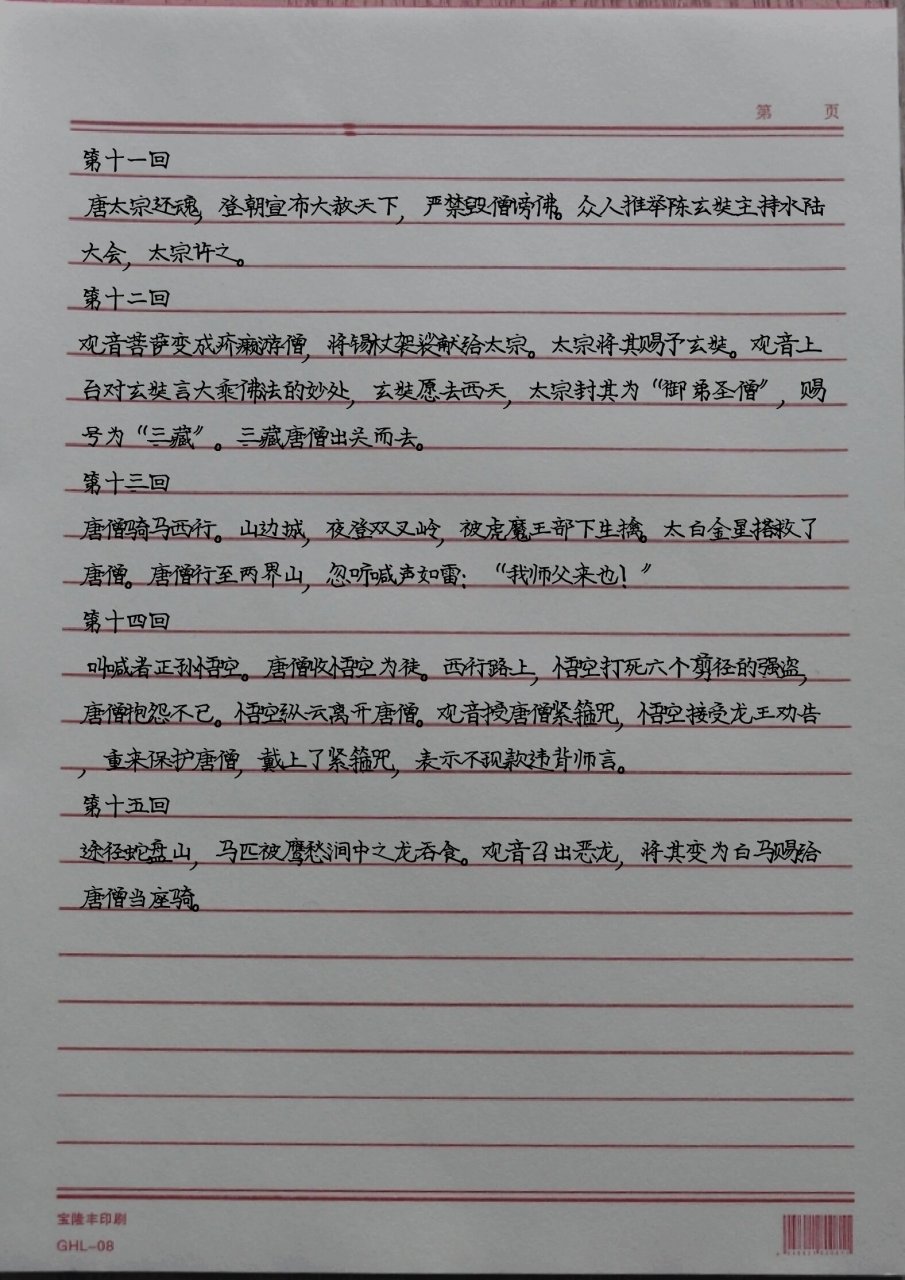 第 页
第十一回
唐太宗还魂，登朝宣布大赦天下，严禁毁僧谤佛。众人推举陈玄奘主持水陆
大会，太宗许之。
第十二回
观音菩萨变成疥癞游僧，将锡杖袈裟献给太宗。太宗将其赐予玄奘。观音上
台对玄奘言大乘佛法的妙处，玄奘愿去西天，太宗封其为“御弟圣僧”，赐
号为“三藏”。三藏唐僧出关而去。
第十三回
唐僧骑马西行。山边城，夜登双叉岭，被虎魔王部下生擒。太白金星搭救了
唐僧。唐僧行至两界山，忽听喊声如雷：“我师父来也！”
第十四回
叫喊者正孙悟空。唐僧收悟空为徒。西行路上，悟空打死六个剪径的强盗，
唐僧抱怨不已。悟空纵云离开唐僧。观音授唐僧紧箍咒，悟空接受龙王劝告
，重来保护唐僧，戴上了紧箍咒，表示不现款违背师言。
第十五回
途径蛇盘山，马匹被鹰愁涧中之龙吞食。观音召出恶龙，将其变为白马赐给
唐僧当座骑。
宝隆丰印刷
GHL-08